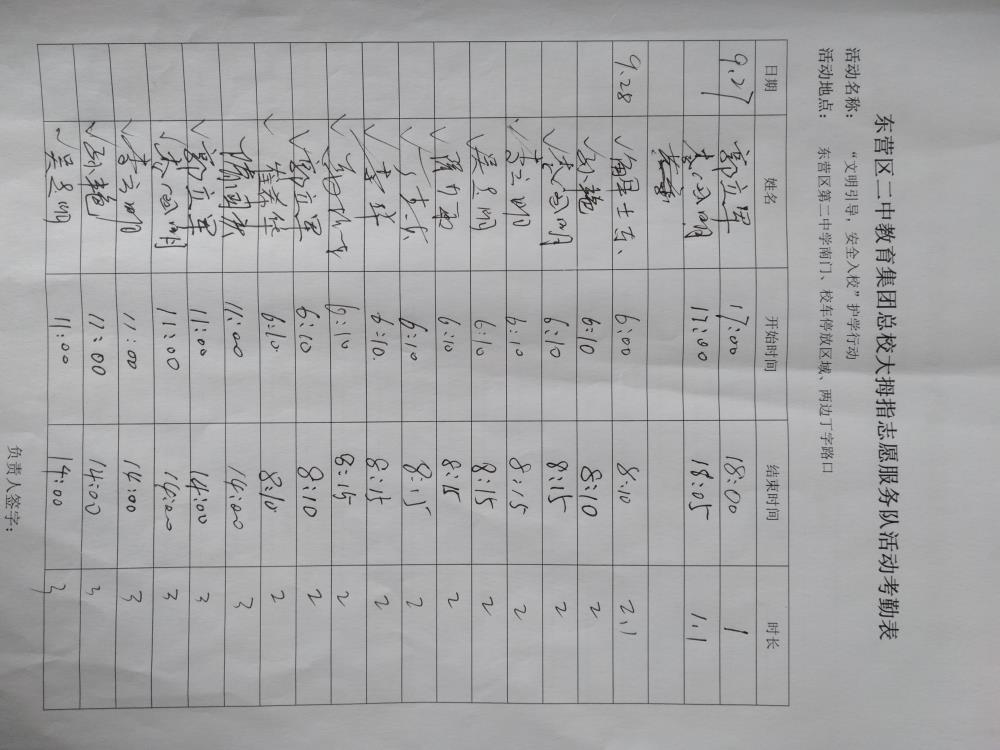 东营区二中教育集团总校大拇指志愿服务队活动考勤表
活动名称： “文明引导，安全入校”护学行动
活动地点： 东营区第二中学南门、校车停放区域、两边丁字路口
日期 姓名 开始时间 结束时间 时长
9.27 郭立军 17:00 18:00 1
17:00 18:05 1.1
9.28 6:00 8:10 2.1
✓ 孙艳 6:10 8:10 2
✓ 6:10 8:15 2
✓ 李云明 6:10 8:15 2
吴昱明 6:10 8:15 2
✓ 6:10 8:15 2
✓ 6:10 8:15 2
✓ 李群 6:10 8:15 2
✓ 6:10 8:15 2
✓ 郭立军 6:10 8:10 2
✓ 6:10 8:10 2
11:00 14:00 3
✓ 郭立军 11:00 14:00 3
✓ 11:00 14:00 3
✓ 李云明 11:00 14:00 3
✓ 孙艳 11:00 14:00 3
✓ 吴昱明 11:00 14:00 3
负责人签字：